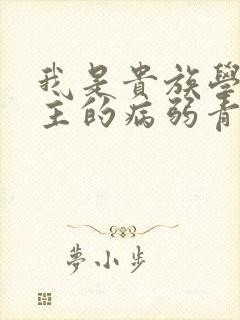 我是貴族學
主的病弱青
夢小步